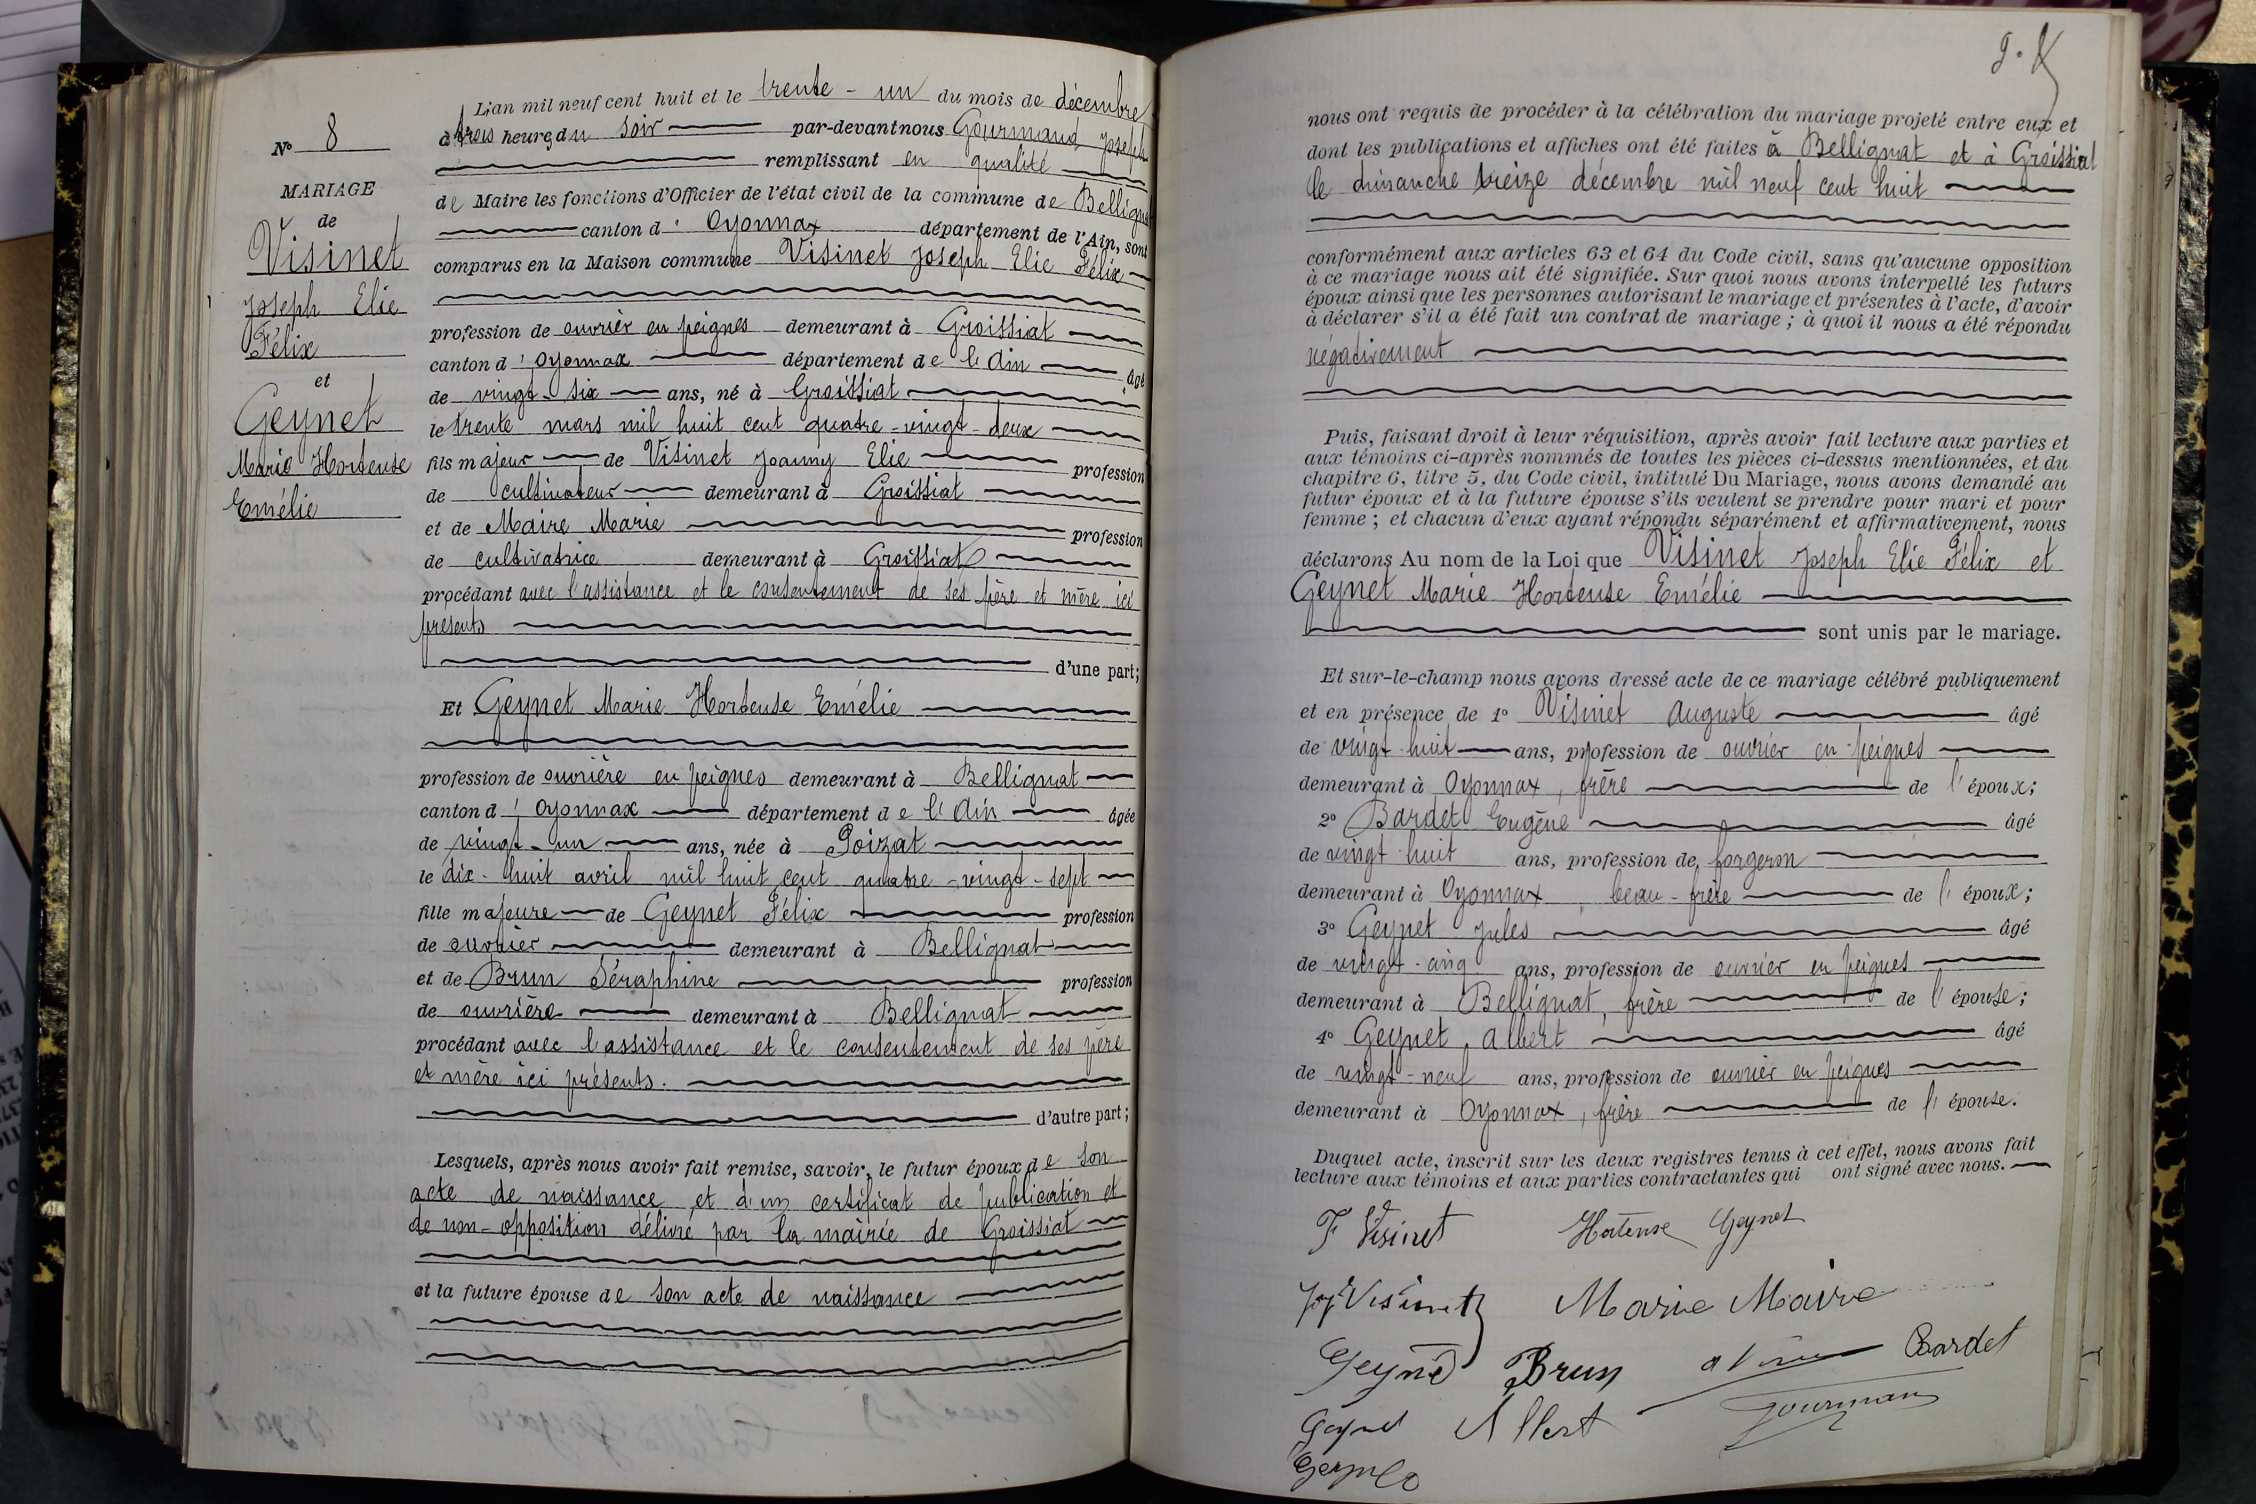 N° 8
MARIAGE
de
Visinet
Joseph Elie
Félix
et
Geynet
Marie Hortense
Emélie
L'an mil neuf cent huit et le trente - un du mois de décembre
à trois heures du soir par-devant nous Gourmand Joseph
remplissant en qualité
de Maire les fonctions d'Officier de l'état civil de la commune de Bellignat
canton d' Oyonnax département de l'Ain, sont
comparus en la Maison commune Visinet Joseph Elie Félix
profession de ouvrier en peignes demeurant à Groissiat
canton d' Oyonnax département de l'Ain âgé
de vingt-six ans, né à Groissiat
le trente mars mil huit cent quatre-vingt-deux
fils majeur de Visinet Joanny Elie profession
de cultivateur demeurant à Groissiat
et de Maire Marie profession
de cultivatrice demeurant à Groissiat
procédant avec l'assistance et le consentement de ses père et mère ici
présents
d'une part;
Et Geynet Marie Hortense Emélie
profession de ouvrière en peignes demeurant à Bellignat
canton d' Oyonnax département de l'Ain âgée
de vingt-un ans, née à Poizat
le dix-huit avril mil huit cent quatre-vingt-sept
fille majeure de Geynet Félix profession
de ouvrier demeurant à Bellignat
et de Brun Séraphine profession
de ouvrière demeurant à Bellignat
procédant avec l'assistance et le consentement de ses père
et mère ici présents.
d'autre part;
Lesquels, après nous avoir fait remise, savoir, le futur époux de son
acte de naissance et d'un certificat de publication et
de non-opposition délivré par la mairie de Groissiat
et la future épouse de son acte de naissance
nous ont requis de procéder à la célébration du mariage projeté entre eux et
dont les publications et affiches ont été faites à Bellignat et à Groissiat
le dimanche treize décembre mil neuf cent huit
conformément aux articles 63 et 64 du Code civil, sans qu'aucune opposition
à ce mariage nous ait été signifiée. Sur quoi nous avons interpellé les futurs
époux ainsi que les personnes autorisant le mariage et présentes à l'acte, d'avoir
à déclarer s'il a été fait un contrat de mariage; à quoi il nous a été répondu
négativement
Puis, faisant droit à leur réquisition, après avoir fait lecture aux parties et
aux témoins ci-après nommés de toutes les pièces ci-dessus mentionnées, et du
chapitre 6, titre 5, du Code civil, intitulé Du Mariage, nous avons demandé au
futur époux et à la future épouse s'ils veulent se prendre pour mari et pour
femme; et chacun d'eux ayant répondu séparément et affirmativement, nous
déclarons Au nom de la Loi que Visinet Joseph Elie Félix et
Geynet Marie Hortense Emélie
sont unis par le mariage.
Et sur-le-champ nous avons dressé acte de ce mariage célébré publiquement
et en présence de 1° Visinet Auguste âgé
de vingt-huit ans, profession de ouvrier en peignes
demeurant à Oyonnax, frère de l'époux;
2° Bardet Eugène âgé
de vingt huit ans, profession de forgeron
demeurant à Oyonnax, beau-frère de l'époux;
3° Geynet Jules âgé
de vingt-cinq ans, profession de ouvrier en peignes
demeurant à Bellignat, frère de l'épouse;
4° Geynet Albert âgé
de vingt-neuf ans, profession de ouvrier en peignes
demeurant à Oyonnax, frère de l'épouse.
Duquel acte, inscrit sur les deux registres tenus à cet effet, nous avons fait
lecture aux témoins et aux parties contractantes qui ont signé avec nous.
F Visinet Hortense Geynet
Visinet Marie Maire
Geynet Brun Bardet
Geynet Albert Gourmand
Geynet